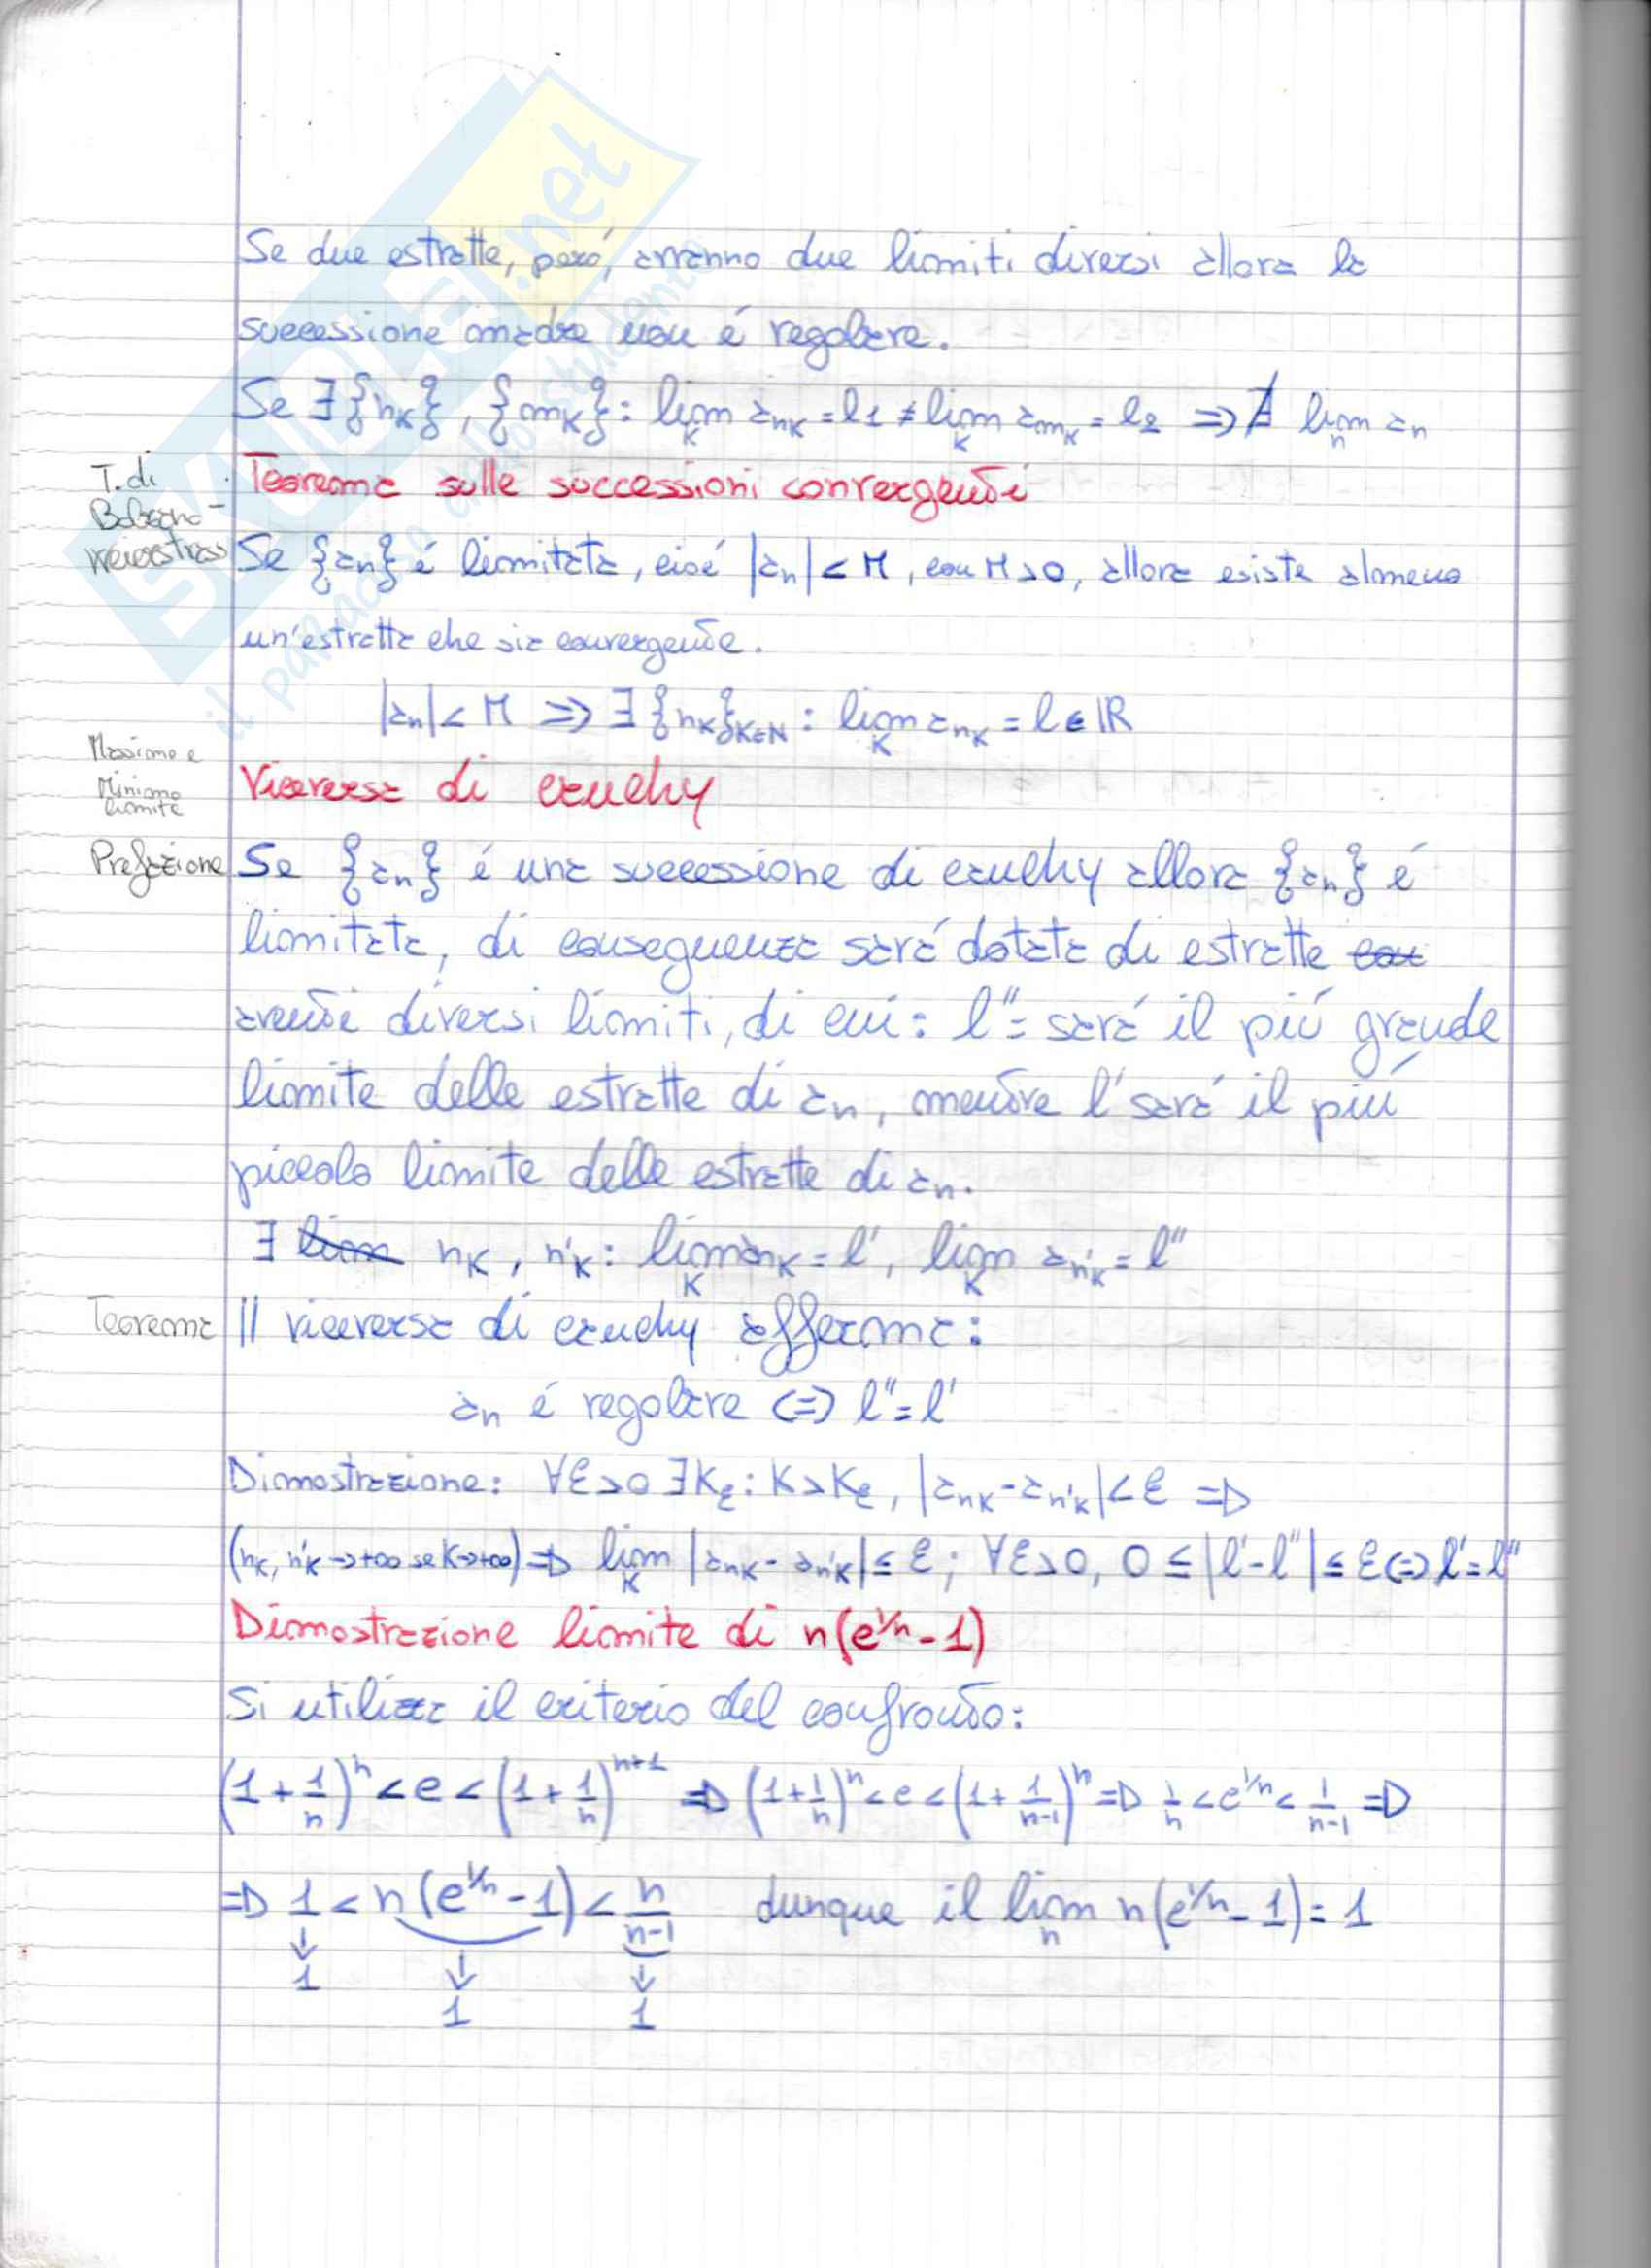 SKUOLA.net
il paradiso dello studente
Se due estratte, però, avranno due limiti diversi allora la
successione madre non é regolare.
Se ∃{nₖ}, {mₖ}: lim_k a_{n_k} = l1 ≠ lim_k a_{m_k} = l2 => ∄ lim_n aₙ
T. di
Bolzano-
Weierstrass
Teorema sulle successioni convergenti
Se {aₙ} é limitata, cioé |aₙ| < M, con M>0, allora esiste almeno
un'estratta che sia convergente.
|aₙ| < M => ∃ {nₖ}_{K∈N} : lim_K a_{n_K} = l ∈ ℝ
Massimo e
Minimo
limite
Viceversa di cauchy
Prefazione
Se {aₙ} é una successione di cauchy allora {aₙ} é
limitata, di conseguenza sará dotata di estratte
aventi diversi limiti, di cui: l"= sará il piú grande
limite delle estratte di aₙ, mentre l' sará il piú
piccolo limite delle estratte di aₙ.
∃ lim n_K, n'_K: lim_K a_{n_K} = l', lim_K a_{n'_K} = l"
Teorema
Il viceversa di cauchy afferma:
aₙ é regolare <=> l"=l'
Dimostrazione: ∀ε>0 ∃K_ε: K>K_ε, |a_{n_K} - a_{n'_K}| < ε =>
(n_K, n'_K → +∞ se K→+∞) => lim_K |a_{n_K} - a_{n'_K}| ≤ ε; ∀ε>0, 0 ≤ |l'-l"| ≤ ε <=> l'=l"
Dimostrazione limite di n(e^{1/n} - 1)
Si utilizza il criterio del confronto:
(1 + 1/n)^n < e < (1 + 1/n)^{n+1} => (1 + 1/n)^n < e < (1 + 1/(n-1))^n => 1/n < e^{1/n} < 1/(n-1) =>
=> 1 < n(e^{1/n} - 1) < n/(n-1) dunque il lim_n n(e^{1/n} - 1) = 1
↓ ↓ ↓
1 1 1